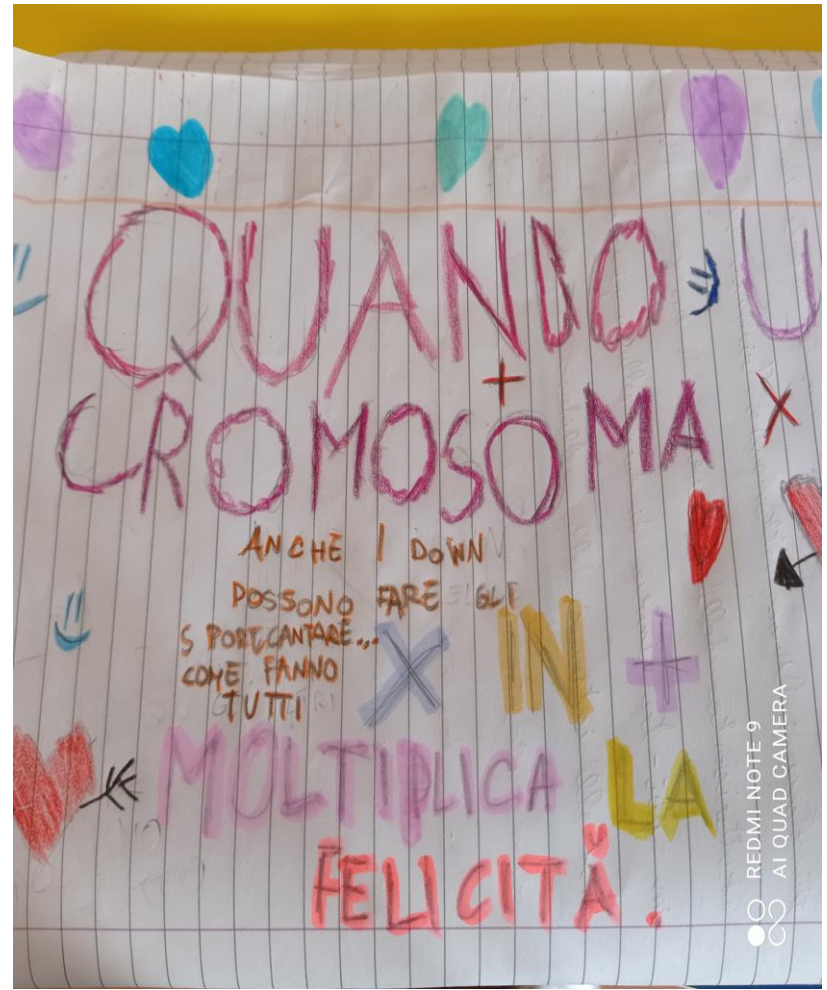 QUANDO U
CROMOSOMA
ANCHE I DOWN
POSSONO FARE GLI
SPORT, CANTARE...
COME FANNO
TUTTI
X IN +
MOLTIPLICA LA
FELICITÀ.
REDMI NOTE 9
AI QUAD CAMERA